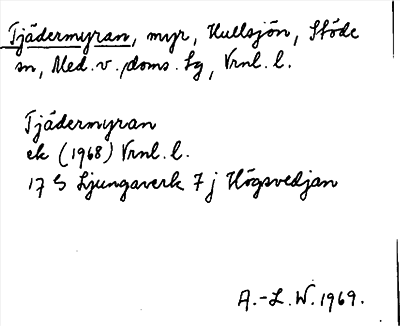 Tjädermyran, myr, Hullsjön, Stöde
sn, Med. v. doms. Lg, Vrnl. l.
Tjädermyran
ek (1968) Vrnl. l.
17 G Ljungaverk 7 j Högsvedjan
A.-L. W. 1969.